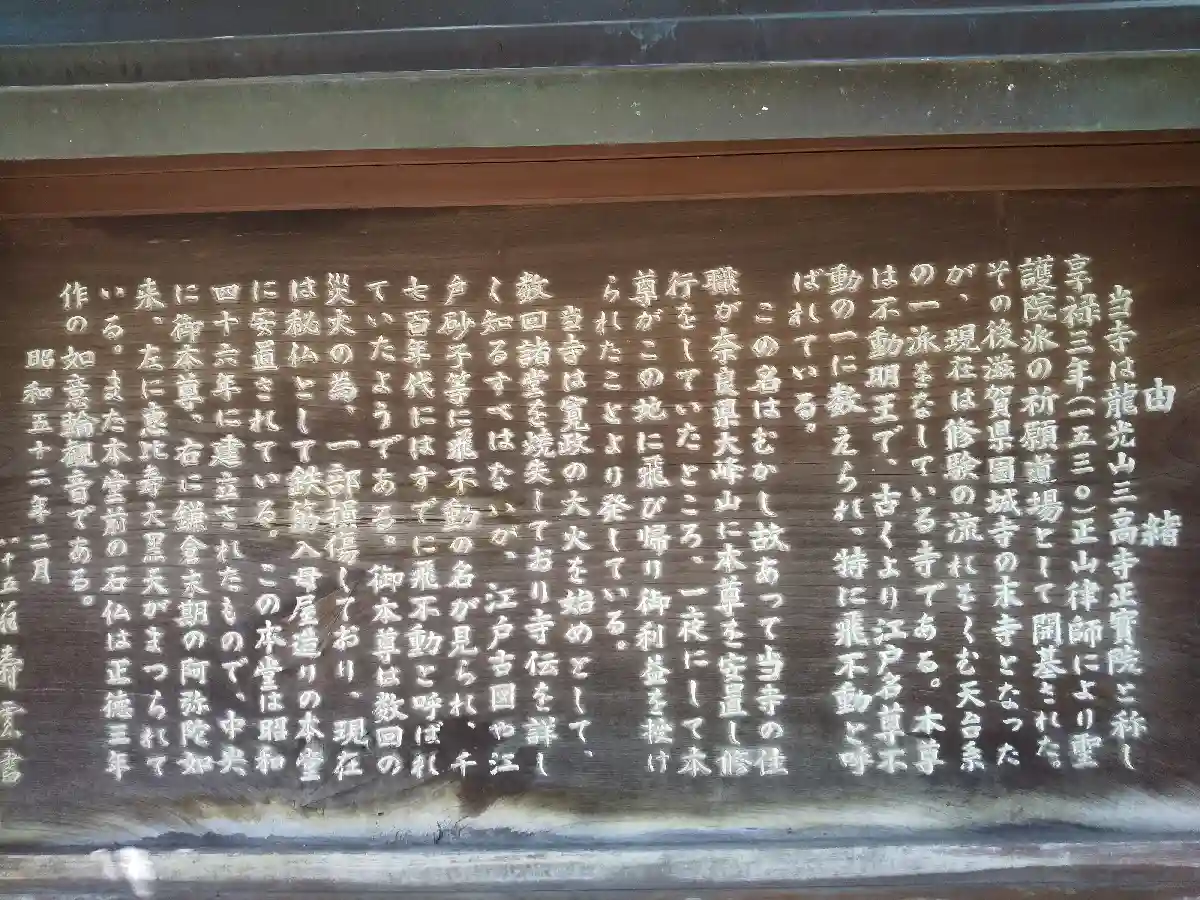 由緒
当寺は龍光山三高寺正寶院と称し
享禄三年(一五三〇)正山律師により聖
護院派の祈願道場として開基された。
その後滋賀県園城寺の末寺となった
が、現在は修験の流れをくむ天台系
の一派をなしている寺である。本尊
は不動明王で、古くより江戸名尊不
動の一に数えられ、特に飛不動と呼
ばれている。
この名はむかし故あって当寺の住
職が奈良県大峰山に本尊を安置し修
行をしていたところ、一夜にして本
尊がこの地に飛び帰り御利益を授け
られたことより発している。
当寺は寛政の大火を始めとして、
数回諸堂を焼失しており寺伝を詳し
く知るすべはないが、江戸古図や江
戸砂子等に飛不動の名が見られ、千
七百年代にはすでに飛不動と呼ばれ
ていたようである。御本尊は数回の
災火の為、一部損傷しており、現在
は秘仏として鉄筋入母屋造りの本堂
に安置されている。この本堂は昭和
四十六年に建立されたもので、中央
に御本尊、右に鎌倉末期の阿弥陀如
来、左に恵比寿大黒天がまつられて
いる。また本堂前の石仏は正徳三年
作の如意輪観音である。
昭和五十二年二月
十五翁寿雲書